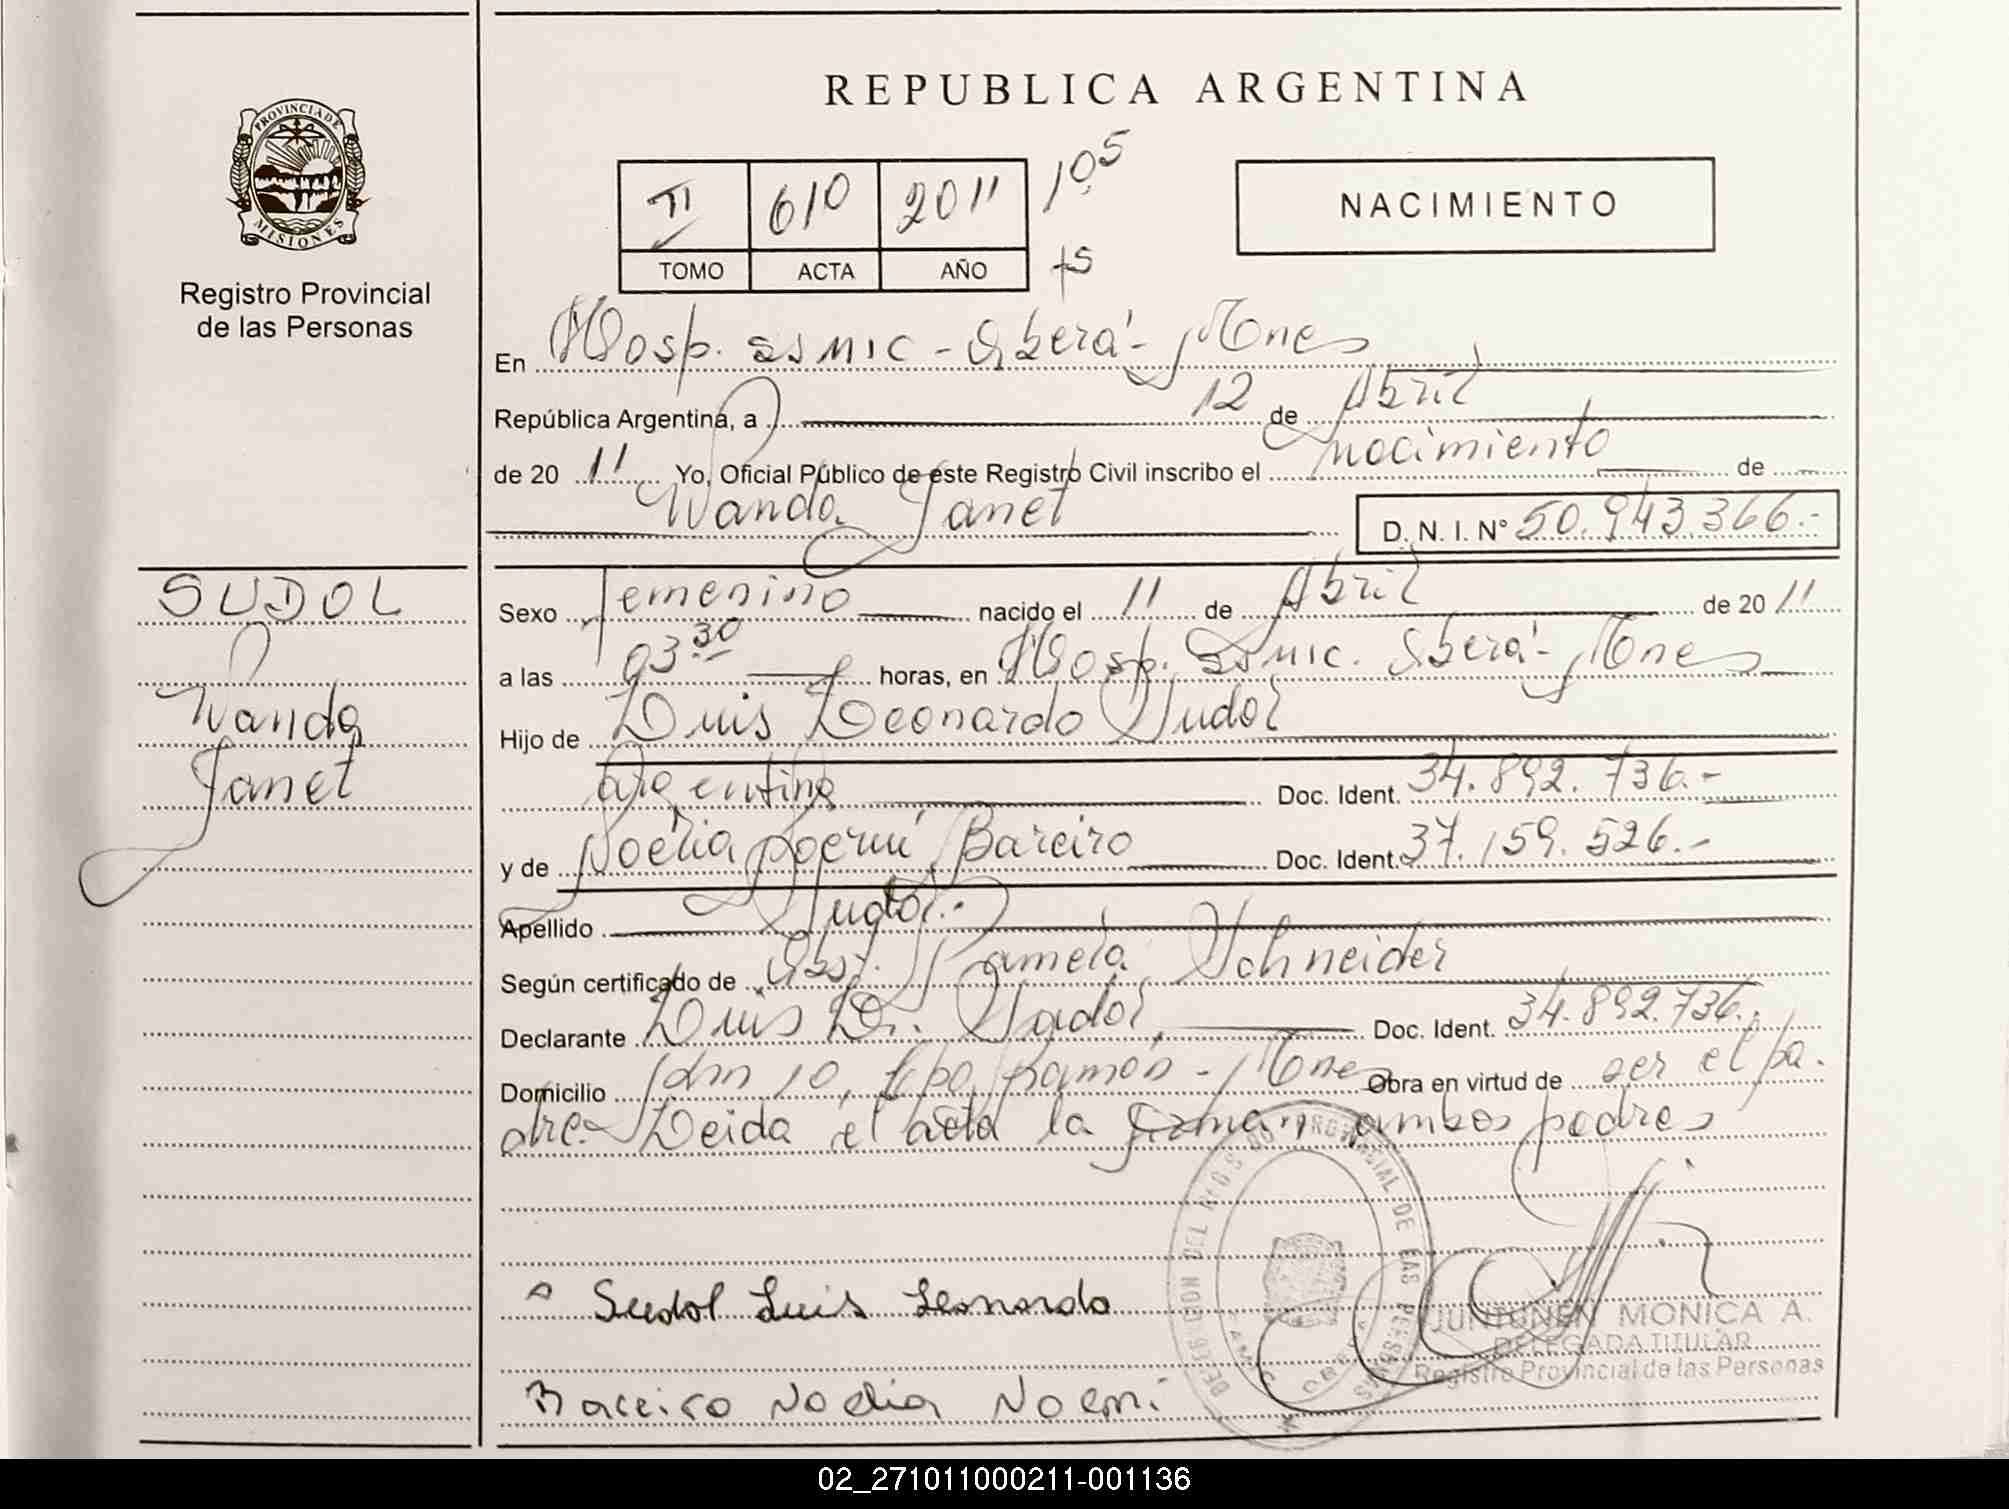 REPUBLICA ARGENTINA
PROVINCIA DE
MISIONES
Registro Provincial
de las Personas
II 610 2011 105
TOMO ACTA AÑO
NACIMIENTO
En Hosp. SSMIC - Oberá - Mnes
República Argentina, a 12 de Abril
de 20 11 Yo, Oficial Público de este Registro Civil inscribo el nacimiento de
Wanda Janet D. N. I. N° 50.943.366.-
SUDOL
Wanda
Janet
Sexo Femenino nacido el 11 de Abril de 20 11
a las 03 30 horas, en Hosp. SSMIC. Oberá - Mnes
Hijo de Luis Leonardo Sudol
Argentina Doc. Ident. 34.892.736.-
y de Noelia Noemí Bareiro Doc. Ident. 37.159.526.-
Apellido Sudol.-
Según certificado de Obst. Pamela Schneider
Declarante Luis L. Sudol Doc. Ident. 34.892.736.-
Domicilio Km 10, Cpo Ramón - Mnes Obra en virtud de ser el pa-
dre.- Leida el acta la firman ambos padres
Sudol Luis Leonardo
Bareiro Noelia Noemi
JUNTUNEN MONICA A.
DELEGADA TITULAR
Registro Provincial de las Personas
02_271011000211-001136